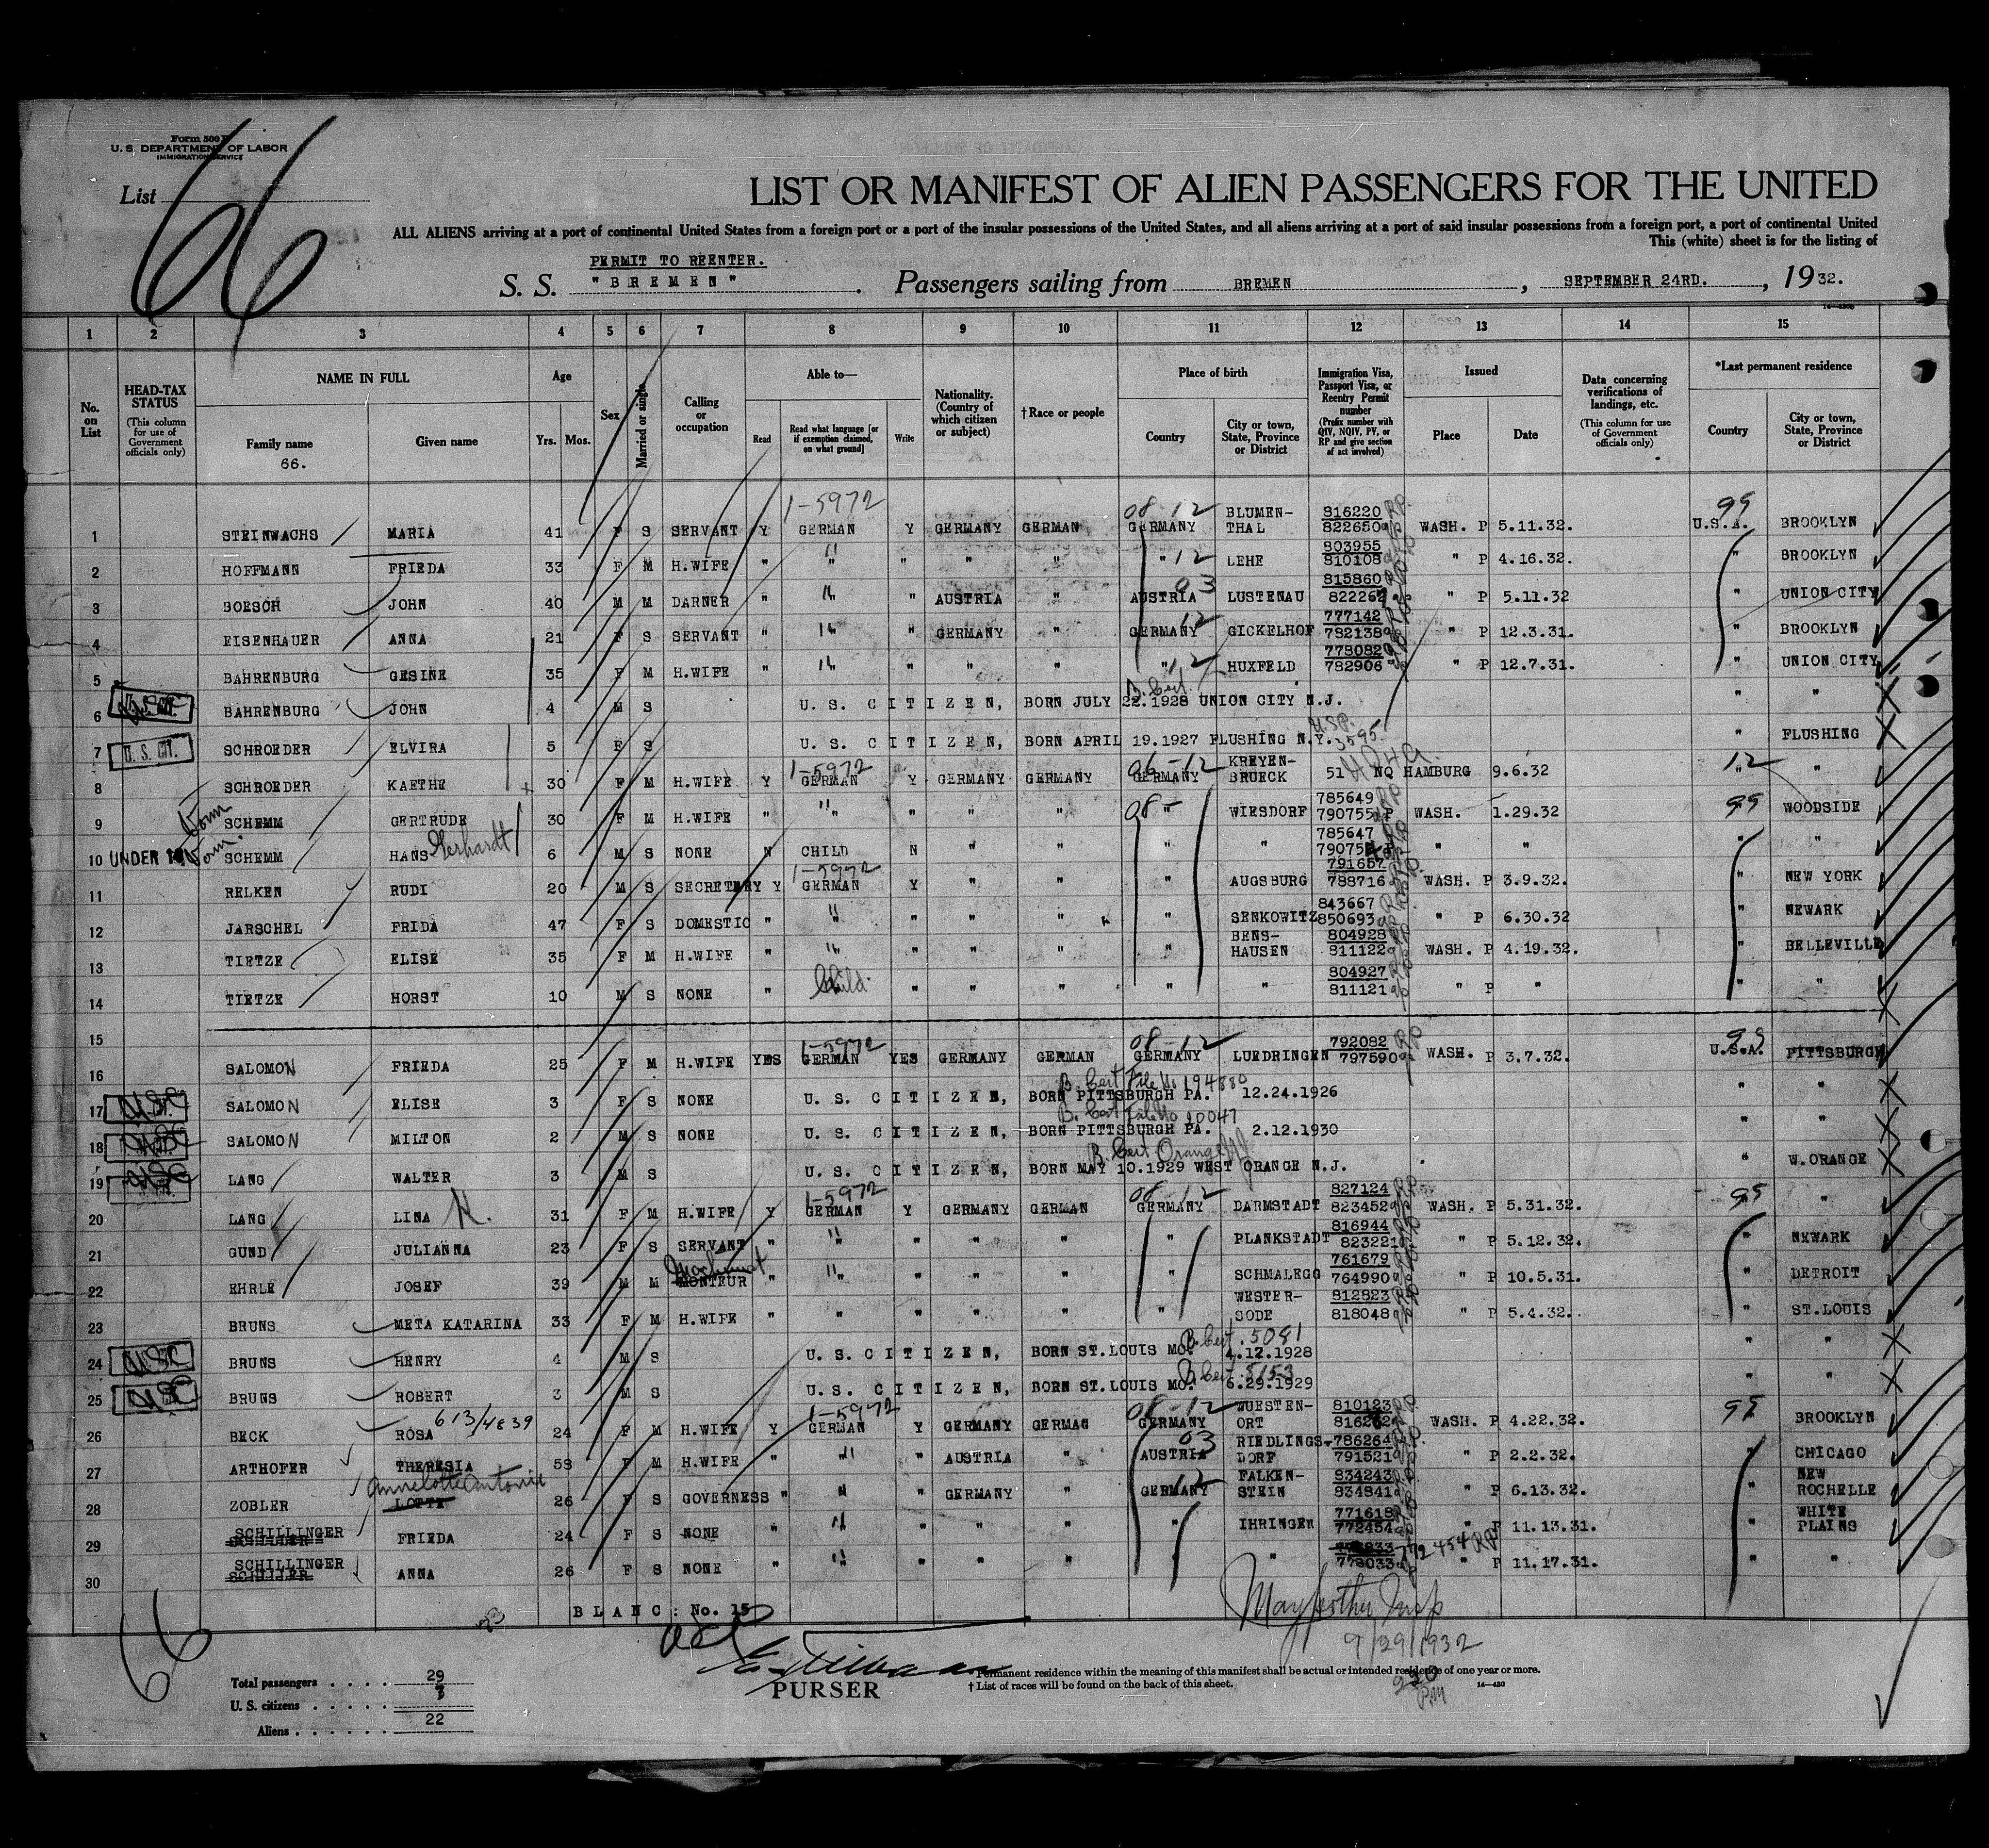 Form 500
U. S. DEPARTMENT OF LABOR
IMMIGRATION SERVICE
List 66
LIST OR MANIFEST OF ALIEN PASSENGERS FOR THE UNITED
ALL ALIENS arriving at a port of continental United States from a foreign port or a port of the insular possessions of the United States, and all aliens arriving at a port of said insular possessions from a foreign port, a port of continental United
This (white) sheet is for the listing of
PERMIT TO REENTER.
S. S. "BREMEN". Passengers sailing from BREMEN, SEPTEMBER 24RD., 1932.
1 2 3 4 5 6 7 8 9 10 11 12 13 14 15
No. on List
HEAD-TAX STATUS (This column for use of Government officials only)
NAME IN FULL
Family name
66.
Given name
Age
Yrs. Mos.
Sex
Married or single
Calling or occupation
Able to—
Read
Read what language [or if exemption claimed, on what ground]
Write
Nationality. (Country of which citizen or subject)
†Race or people
Place of birth
Country
City or town, State, Province or District
Immigration Visa, Passport Visa, or Reentry Permit number (Prefix number with QIV, NQIV, PV, or RP and give section of act involved)
Issued
Place
Date
Data concerning verifications of landings, etc. (This column for use of Government officials only)
*Last permanent residence
Country
City or town, State, Province or District
1-5972 08-12 99
1 STEINWACHS MARIA 41 F S SERVANT Y GERMAN Y GERMANY GERMAN GERMANY BLUMEN-THAL 816220 822650 WASH. P 5.11.32. U.S.A. BROOKLYN
2 HOFFMANN FRIEDA 33 F M H.WIFE " " " " " " 12 LEHE 803955 810108 " P 4.16.32. " BROOKLYN
3 BOESCH JOHN 40 M M DARNER " " " AUSTRIA " AUSTRIA 03 LUSTENAU 815860 822262 " P 5.11.32 " UNION CITY
4 EISENHAUER ANNA 21 F S SERVANT " " " GERMANY " GERMANY 12 GICKELHOF 777142 782138 " P 12.3.31. " BROOKLYN
5 BAHRENBURG GESINE 35 F M H.WIFE " " " " " " 12 HUXFELD 778082 782906 " P 12.7.31. " UNION CITY
B. Cert.
6 BAHRENBURG JOHN 4 M S U. S. CITIZEN, BORN JULY 22.1928 UNION CITY N.J. " "
7 U. S. CIT. SCHROEDER ELVIRA 5 F S U. S. CITIZEN, BORN APRIL 19.1927 FLUSHING N.Y. U.S.P. 3595 " FLUSHING
1-5972 06-12 12
8 SCHROEDER KAETHE 30 F M H.WIFE Y GERMAN Y GERMANY GERMANY GERMANY KREYEN-BRUECK 51 NQ HAMBURG 9.6.32 " "
9 SCHEMM GERTRUDE 30 F M H.WIFE " " " " " 08- " WIESDORF 785649 790755 P WASH. 1.29.32 99 WOODSIDE
10 UNDER 16 SCHEMM HANS Gerhardt 6 M S NONE N CHILD N " " " " 785647 " " " "
1-5972
11 RELKEN RUDI 20 M S SECRETERY Y GERMAN Y " " " AUGSBURG 791657 788716 WASH. P 3.9.32. " NEW YORK
12 JARSCHEL FRIDA 47 F S DOMESTIC " " " " " " SENKOWITZ 843667 850693 " P 6.30.32 " NEWARK
13 TIETZE ELISE 35 F M H.WIFE " " " " " " BENS-HAUSEN 804928 811122 WASH. P 4.19.32. " BELLEVILLE
14 TIETZE HORST 10 M S NONE " Child. " " " " " 804927 811121 " P " " "
15
1-5972 08-12 99
16 SALOMON FRIEDA 25 F M H.WIFE YES GERMAN YES GERMANY GERMAN GERMANY LUEDRINGEN 792082 797590 WASH. P 3.7.32. U.S.A. PITTSBURGH
B. Cert File No 194880
17 SALOMON ELISE 3 F S NONE U. S. CITIZEN, BORN PITTSBURGH PA. 12.24.1926 " "
B. Cert File No 20047
18 SALOMON MILTON 2 M S NONE U. S. CITIZEN, BORN PITTSBURGH PA. 2.12.1930 " "
B. Cert Orange NJ
19 LANG WALTER 3 M S U. S. CITIZEN, BORN MAY 10.1929 WEST ORANGE N.J. " W.ORANGE
1-5972 08-12 99
20 LANG LINA K. 31 F M H.WIFE Y GERMAN Y GERMANY GERMAN GERMANY DARMSTADT 827124 823452 WASH. P 5.31.32. "
21 GUND JULIANNA 23 F S SERVANT " " " " " " PLANKSTADT 816944 823221 " P 5.12.32. " NEWARK
22 EHRLE JOSEF 39 M M MONTEUR Machinist " " " " " SCHMALEGG 761679 764990 " P 10.5.31. " DETROIT
23 BRUNS META KATARINA 33 F M H.WIFE " " " " " " WESTER-SODE 812823 818048 " P 5.4.32. " ST.LOUIS
B. Cert. 5081
24 BRUNS HENRY 4 M S U. S. CITIZEN, BORN ST.LOUIS MO. 4.17.1928 " "
B. Cert. 5153
25 BRUNS ROBERT 3 M S U. S. CITIZEN, BORN ST.LOUIS MO. 6.29.1929 " "
613/4839 1-5972 08-12 99
26 BECK ROSA 24 F M H.WIFE Y GERMAN Y GERMANY GERMAG GERMANY WUESTEN-ORT 810123 816262 WASH. P 4.22.32. BROOKLYN
27 ARTHOFER THERESIA 58 F M H.WIFE " " " AUSTRIA " AUSTRIA 03 RIEDLINGS-DORF 786264 791521 " P 2.2.32. " CHICAGO
Annelotte Antonie
28 ZOBLER LOTTE 26 F S GOVERNESS " " " GERMANY " GERMANY 12 FALKEN-STEIN 834243 834841 " P 6.13.32. NEW ROCHELLE
29 SCHILLINGER FRIEDA 24 F S NONE " " " " " " IHRINGEN 771618 772454 " P 11.13.31. WHITE PLAINS
30 SCHILLINGER ANNA 26 F S NONE " " " " " " " 778033 772454 RP " P 11.17.31. " "
BLANC: No. 15
9/29/1932
PURSER
66
Total passengers . . . . 29
U. S. citizens . . . . .
Aliens . . . . . . 22
*Permanent residence within the meaning of this manifest shall be actual or intended residence of one year or more.
† List of races will be found on the back of this sheet.
14—430
220 PM